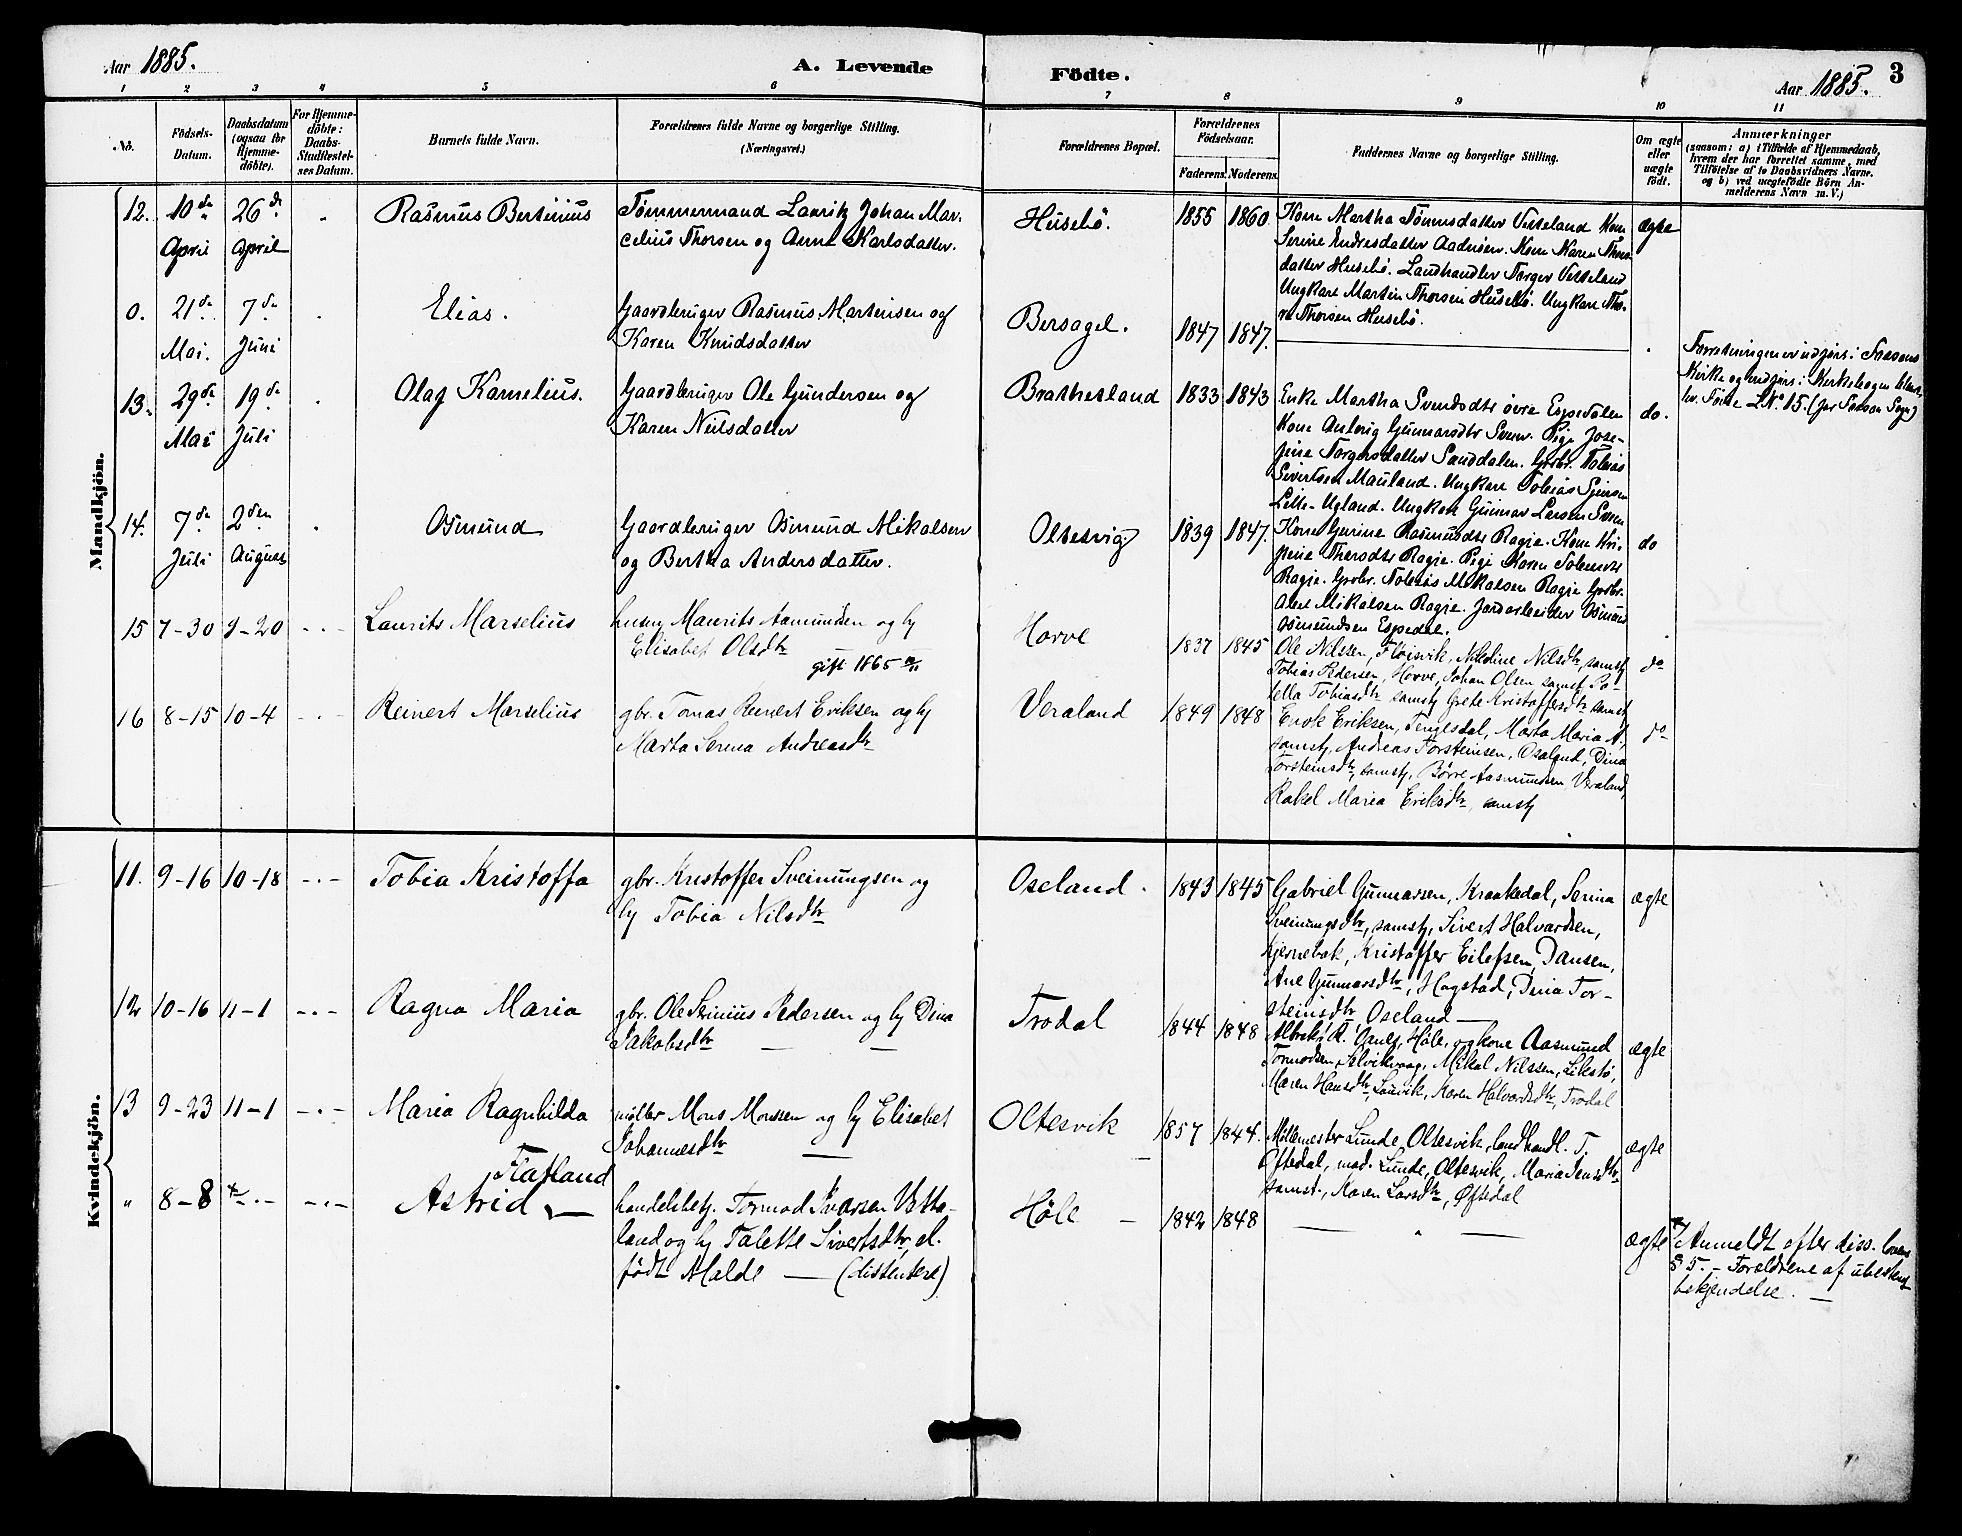 Aar 1885.
A. Levende
Födte.
Aar 1885.
3
1 2 3 4 5 6 7 8 9 10 11
No.
Födsels-
Datum.
Daabsdatum
(ogsaa for
Hjemme-
döbte).
For Hjemme-
döbte:
Daabs-
Stadfæstel-
ses Datum.
Barnets fulde Navn.
Forældrenes fulde Navne og borgerlige Stilling.
(Næringsvei.)
Forældrenes Bopæl.
Forældrenes
Födselsaar.
Faderens. Moderens.
Faddernes Navne og borgerlige Stilling.
Om ægte
eller
uægte
födt.
Anmærkninger
(saasom: a) i Tilfælde af Hjemmedaab,
hvem der har forrettet samme, med
Tilföielse af to Daabsvidners Navne,
og b) ved uægtefödte Börn An-
melderens Navn m. V.)
Mandkjön.
12. 10de April 26de April
Rasmus Bertinius
Tömmermand Lauritz Johan Mar-
celius Thorsen og Anne Karlsdatter.
Husebö.
1855 1860
Kone Martha Tönnesdatter Vetteland Kone
Serine Endresdatter Aadnöen. Kone Karen Thors-
datter Husebö. Landhandler Torger Vetteland
Ungkarl Martin Thorsen Husebö. Ungkarl Tho-
re Thorsen Husebö.
ægte
0. 21de Mai. 7de Juni
Elias.
Gaardbruger Rasmus Martinsen og
Karen Knudsdatter
Bersagel.
1847 1847.
Forretningen er udförs i Fossens
Kirke og indförs i Kirkebogen
L.No. 15.
13. 29de Mai 19de Juli
Olaf Kornelius.
Gaardbruger Ole Gundersen og
Karen Neilsdatter
Brattetland
1833 1843
Enke Martha Svendsdtr övre Espedalen
Kone Anborg Gunnarsdtr Pige Jose-
fine Torgersdatter Sanddalen. Grbr. Tobias
Sivertsen Mauland. Ungkarl Tobias
Lille-Ugland. Ungkarl Gunnar Larsen
do.
14. 7de Juli 2den August
Osmund
Gaardbruger Osmund Mikalsen
og Bertha Andersdatter.
Oltesvig.
1839 1847.
Kone Gurine Rasmusdtr Ragje. Kone
Ragje. Pige Karen
Ragje. Grbr. Tobias Mikalsen Ragje Grbr.
Abel Mikalsen Ragje. Jordarbeider Osmund
Osmundsen Espedal.
do
15 7-30 9-20 - . -
Laurits Marselius
husm Maurits Aamundsen og hj
Elisabet Olsdtr
gift 1865
Horve
1837 1845
Ole Nilssen, Fløisvik, Nikoline Nilsdtr, samst,
Tobias Pedersen, Horve, Johan Olsen samst,
Tobiasdtr samst, Grete Kristoffersdtr samst,
do
16 8-15 10-4 - . -
Reinert Marselius
gbr. Tomas Reinert Eriksen og hj
Marta Serina Andreasdtr
Veraland
1849 1848
Enok Eriksen, Tengesdal, Marta Maria A,
samst, Andreas Torsteinsen, Osaland, Dina
Torsteinsdtr, samst, Børre Aasmundsen Veraland,
Rakel Maria Eriksdtr, samst
do
Kvindekjön.
11. 9-16 10-18 - . -
Tobia Kristoffa
gbr. Kristoffer Sveinungsen og
hj Tobia Nilsdtr
Oseland.
1843 1845
Gabriel Gunnarsen, Kraakedal, Serina
Sveinungsdtr, samst, Sivert Halvardsen,
Kjernebæk, Kristoffer Eilefsen, Dansen,
Ane Gunnarsdtr, Hogstad, Dina Tor-
steinsdtr Oseland —
ægte
12 10-16 11-1 - . -
Ragna Maria
gbr. Ole Serinius Pedersen og hj Dina
Jakobsdtr — —
Trodal
1844 1848
Høle, og kone Aasmund
Tormodsen, Selvikvaag, Mikal Nilssen, Likstø,
Maren Hansdtr, Lauvik, Karen Halvardsdtr, Trodal
ægte
13 9-23 11-1 - . -
Maria Ragnhilda
møller Mons Monssen og hj Elisabet
Johannesdtr —
Oltesvik
1857 1844.
Møllemester Lunde, Oltesvik, landhandl. T.
Oftedal, mad. Lunde, Oltesvik, Maria Jensdtr
samst., Karen Larsdtr, Øftedal
ægte
" 8-8 - . -
Flatland
Astrid —
handelsbetj. Tormod Ivarsen Vetta-
land og hj Talette Sivertsdtr, el.
født Malde — (dissentere)
Høle —
1842 1848
— " —
ægte
Anmeldt efter diss. loven
§ 5. - Forældrene af ubestemt
bekjendelse. —